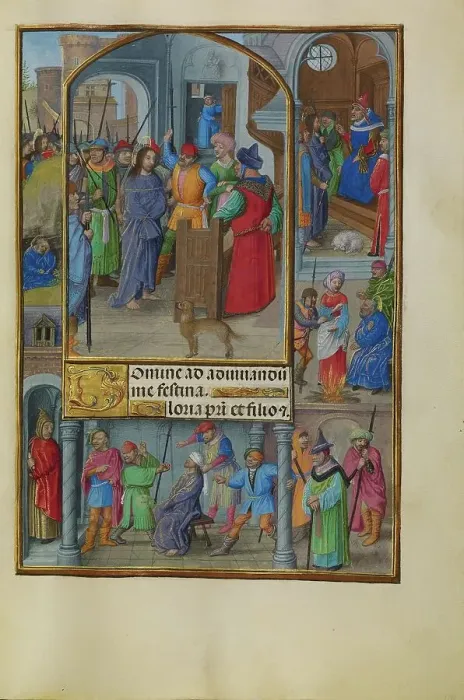 Domine ad adiuuandū
me festina.
Gloria pri̅ et filio ⁊.